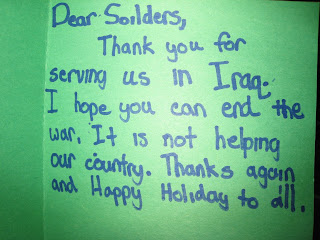 Dear Soilders,
Thank you for
serving us in Iraq.
I hope you can end the
war. It is not helping
our country. Thanks again
and Happy Holiday to all.